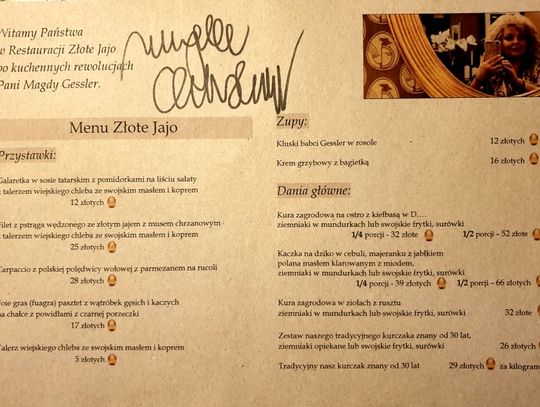 Witamy Państwa
w Restauracji Złote Jajo
po kuchennych rewolucjach
Pani Magdy Gessler.
Menu Złote Jajo
Przystawki:
Galaretka w sosie tatarskim z pomidorkami na liściu sałaty
z talerzem wiejskiego chleba ze swojskim masłem i koprem
12 złotych
Filet z pstrąga wędzonego ze złotym jajem z musem chrzanowym
z talerzem wiejskiego chleba ze swojskim masłem i koprem
25 złotych
Carpaccio z polskiej polędwicy wołowej z parmezanem na rucoli
28 złotych
Foie gras (fuagra) pasztet z wątróbek gęsich i kaczych
na chałce z powidłami z czarnej porzeczki
17 złotych
Talerz wiejskiego chleba ze swojskim masłem i koprem
5 złotych
Zupy:
Kluski babci Gessler w rosole 12 złotych
Krem grzybowy z bagietką 16 złotych
Dania główne:
Kura zagrodowa na ostro z kiełbasą w D....
ziemniaki w mundurkach lub swojskie frytki, surówki
1/4 porcji - 32 złote 1/2 porcji – 52 złote
Kaczka na dziko w cebuli, majeranku z jabłkiem
polana masłem klarowanym z miodem,
ziemniaki w mundurkach lub swojskie frytki, surówki
1/4 porcji - 39 złotych 1/2 porcji – 66 złotych
Kura zagrodowa w ziołach z rusztu
ziemniaki w mundurkach lub swojskie frytki, surówki 32 złote
Zestaw naszego tradycyjnego kurczaka znany od 30 lat,
ziemniaki opiekane lub swojskie frytki, surówki 26 złotych
Tradycyjny nasz kurczak znany od 30 lat 29 złotych za kilogram